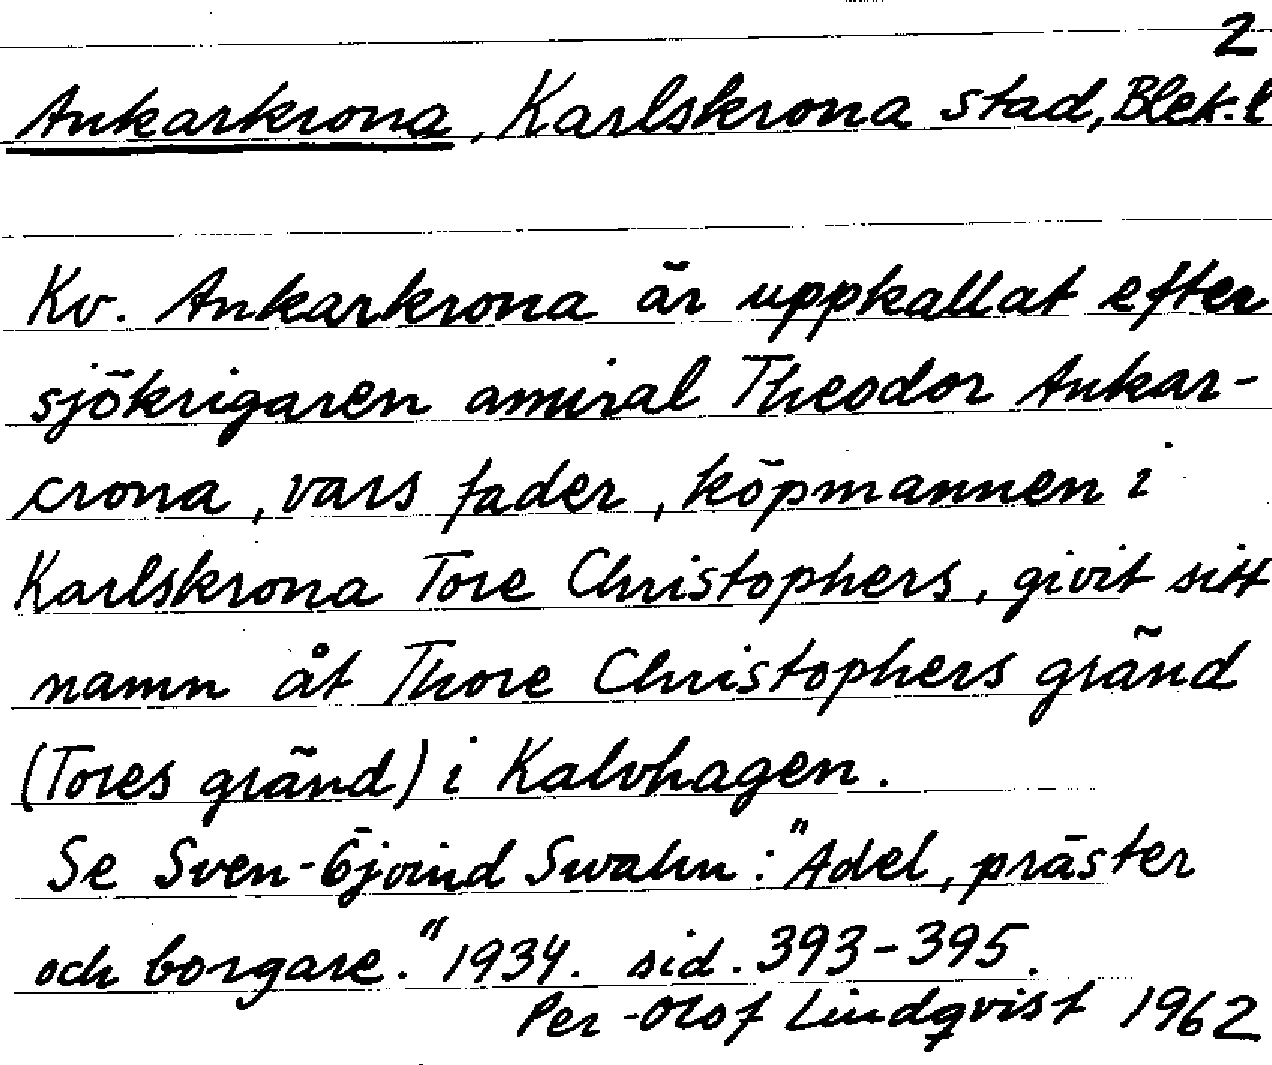 2
Ankarkrona, Karlskrona stad, Blek. l
Kv. Ankarkrona är uppkallat efter
sjökrigaren amiral Theodor Ankar-
crona, vars fader, köpmannen i
Karlskrona Tore Christophers, givit sitt
namn åt Thore Christophers gränd
(Tores gränd) i Kalvhagen.
Se Sven-Öjvind Swahn: "Adel, präster
och borgare." 1934. sid. 393-395.
Per-Olof Lindqvist 1962